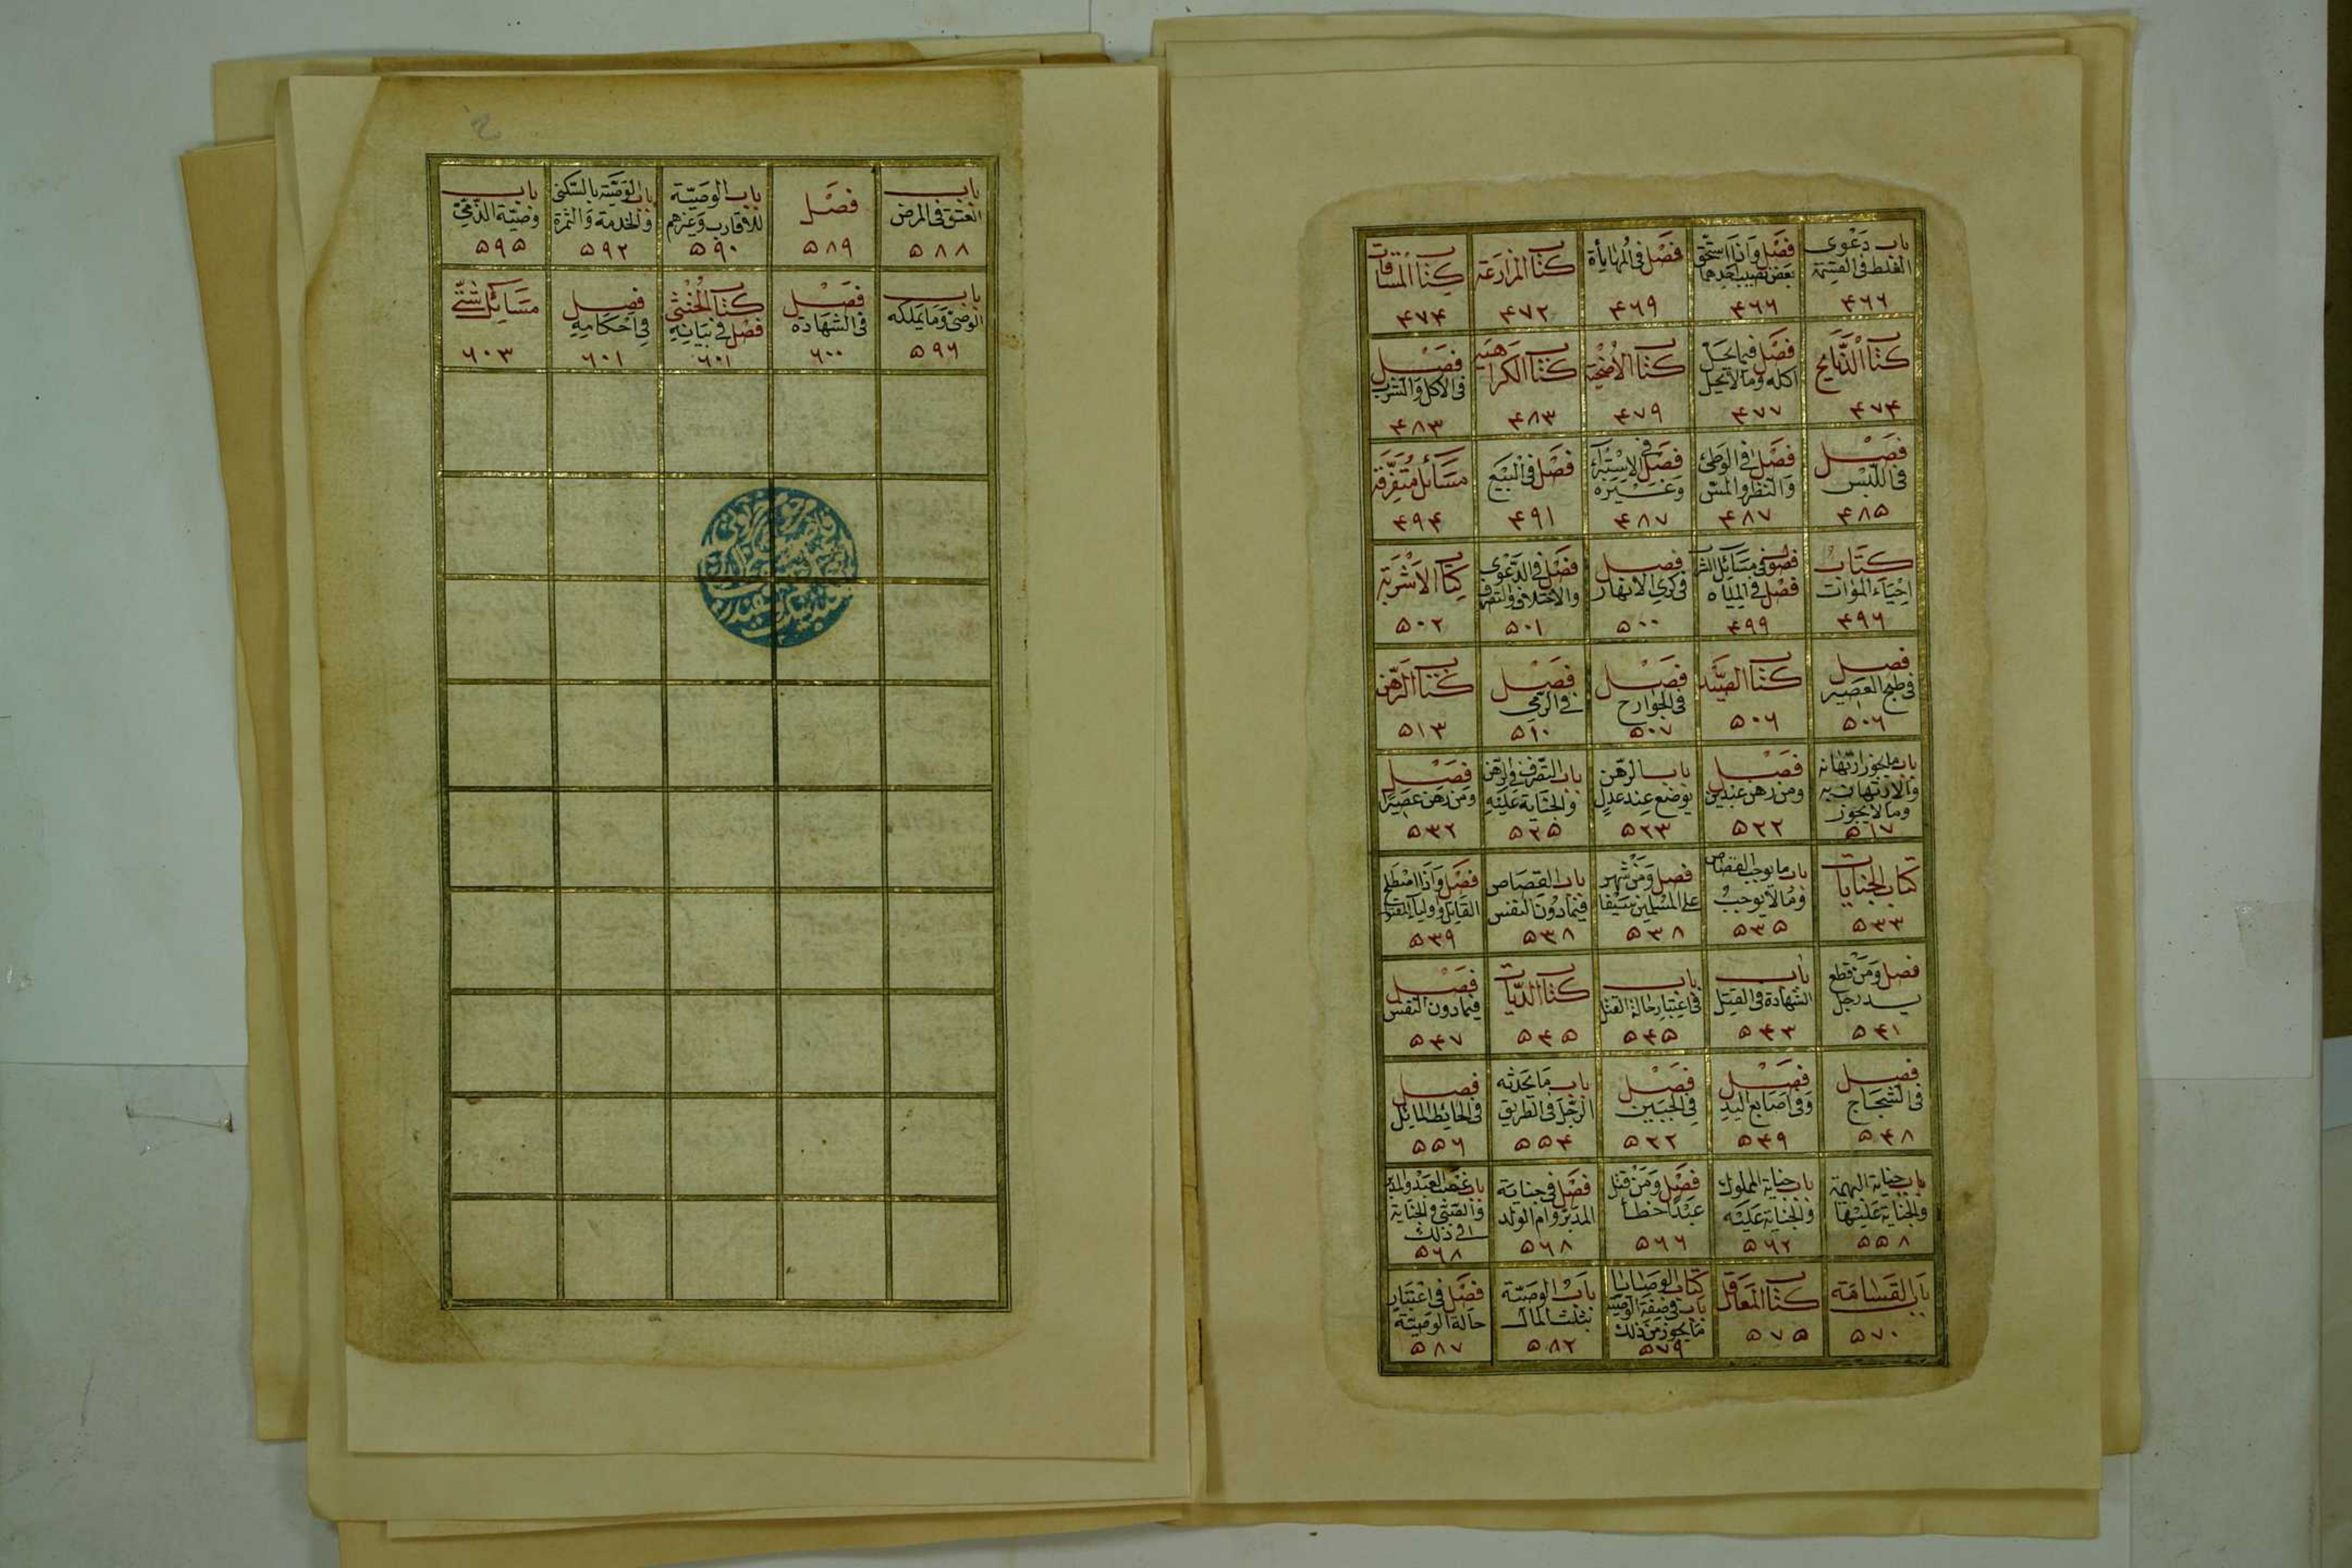 باب دعوى
الغلط فى القسمة
۴۶۶
فصل واذا استحق
بعض نصيب احدهما
۴۶۶
فصل فى المهايأة
۴۶۹
كتاب المزارعة
۴۷۲
كتاب المساقات
۴۷۴
كتاب الذبايح
۴۷۴
فصل فيما يحل
اكله وما لا يحل
۴۷۷
كتاب الاضحية
۴۷۹
كتاب الكراهية
۴۸۳
فصل
فى الاكل والشرب
۴۸۳
فصل
فى اللبس
۴۸۵
فصل فى الوطئ
والنظر والمس
۴۸۷
فصل فى الاستبراء
وغيره
۴۸۷
فصل فى البيع
۴۹۱
مسائل متفرقة
۴۹۴
كتاب
احياء الموات
۴۹۶
فصول فى مسائل الشرب
فصل فى المياه
۴۹۹
فصل
فى كرى الانهار
۵۰۰
فصل فى الدعوى
والاختلاف والتصرف
۵۰۱
كتاب الاشربة
۵۰۲
فصل
فى طبخ العصير
۵۰۶
كتاب الصيد
۵۰۶
فصل
فى الجوارح
۵۰۷
فصل
فى الرمى
۵۱۰
كتاب الرهن
۵۱۳
باب ما يجوز ارتهانه
والارتهان به
وما لا يجوز
۵۱۷
فصل
ومن رهن عبدين
۵۲۲
باب الرهن
يوضع عند عدل
۵۲۳
باب التصرف فى الرهن
والجناية عليه
۵۲۵
فصل
ومن رهن عصيرا
۵۳۲
كتاب الجنايات
۵۳۳
باب ما يوجب القصاص
وما لا يوجب
۵۳۵
فصل ومن شهر
على المسلمين سيفا
۵۳۸
باب القصاص
فيما دون النفس
۵۳۸
فصل واذا اصطلح
القاتل واولياء المقتول
۵۳۹
فصل ومن قطع
يد رجل
۵۴۱
باب
الشهادة فى القتل
۵۴۳
باب
فى اعتبار حالة القتل
۵۴۵
كتاب الديات
۵۴۵
فصل
فيما دون النفس
۵۴۷
فصل
فى الشجاج
۵۴۸
فصل
وفى اصابع اليد
۵۴۹
فصل
فى الجنين
۵۳۲
باب ما يحدثه
الرجل فى الطريق
۵۵۴
فصل
فى الحائط المايل
۵۵۶
باب جناية البهيمة
والجناية عليها
۵۵۸
باب جناية المملوك
والجناية عليه
۵۶۲
فصل ومن قتل
عبدا خطأ
۵۶۶
فصل فى جناية
المدبر وام الولد
۵۶۸
باب غصب العبد والمدبر
والصبى والجناية
فى ذلك
۵۶۸
باب القسامة
۵۷۰
كتاب المعاقل
۵۷۵
كتاب الوصايا
باب فى صفة الوصية
ما يجوز من ذلك
۵۷۹
باب الوصية
بثلث المال
۵۸۲
فصل فى اعتبار
حالة الوصية
۵۸۷
باب
العتق فى المرض
۵۸۸
فصل
۵۸۹
باب الوصية
للاقارب وغيرهم
۵۹۰
باب الوصية بالسكنى
والخدمة والثمرة
۵۹۲
باب
وصية الذمى
۵۹۵
باب
الوصى وما يملكه
۵۹۶
فصل
فى الشهادة
۶۰۰
كتاب الخنثى
فصل فى بيانه
۶۰۱
فصل
فى احكامه
۶۰۱
مسائل شتى
۶۰۳